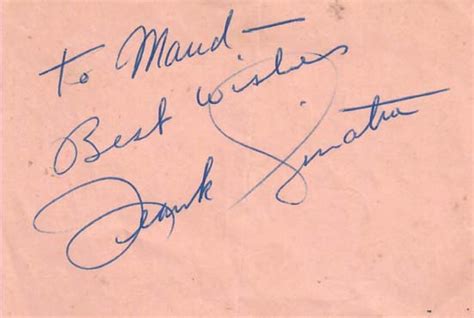 To Maud —
Best Wishes
Frank Sinatra